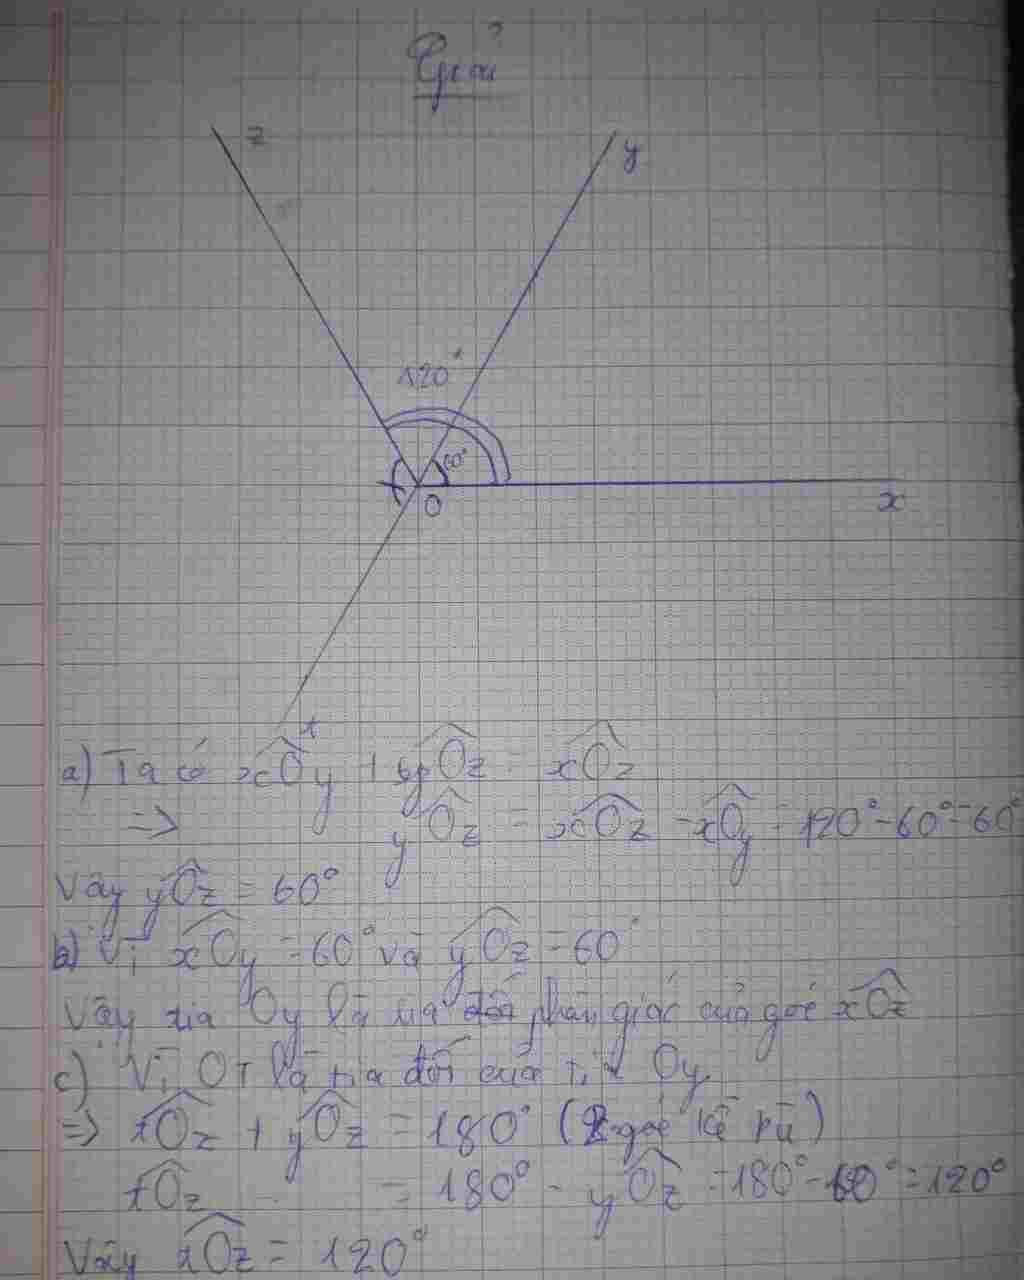 Giải
z
y
120°
60°
O
x
t
a) Ta có xOy + yOz = xOz
=> yOz = xOz - xOy = 120° - 60° = 60°
Vậy yOz = 60°
b) Vì xOy = 60° và yOz = 60°
Vậy tia Oy là tia phân giác của góc xOz
c) Vì OT là tia đối của tia Oy
=> tOz + yOz = 180° (2 góc kề bù)
tOz = 180° - yOz = 180° - 60° = 120°
Vậy tOz = 120°